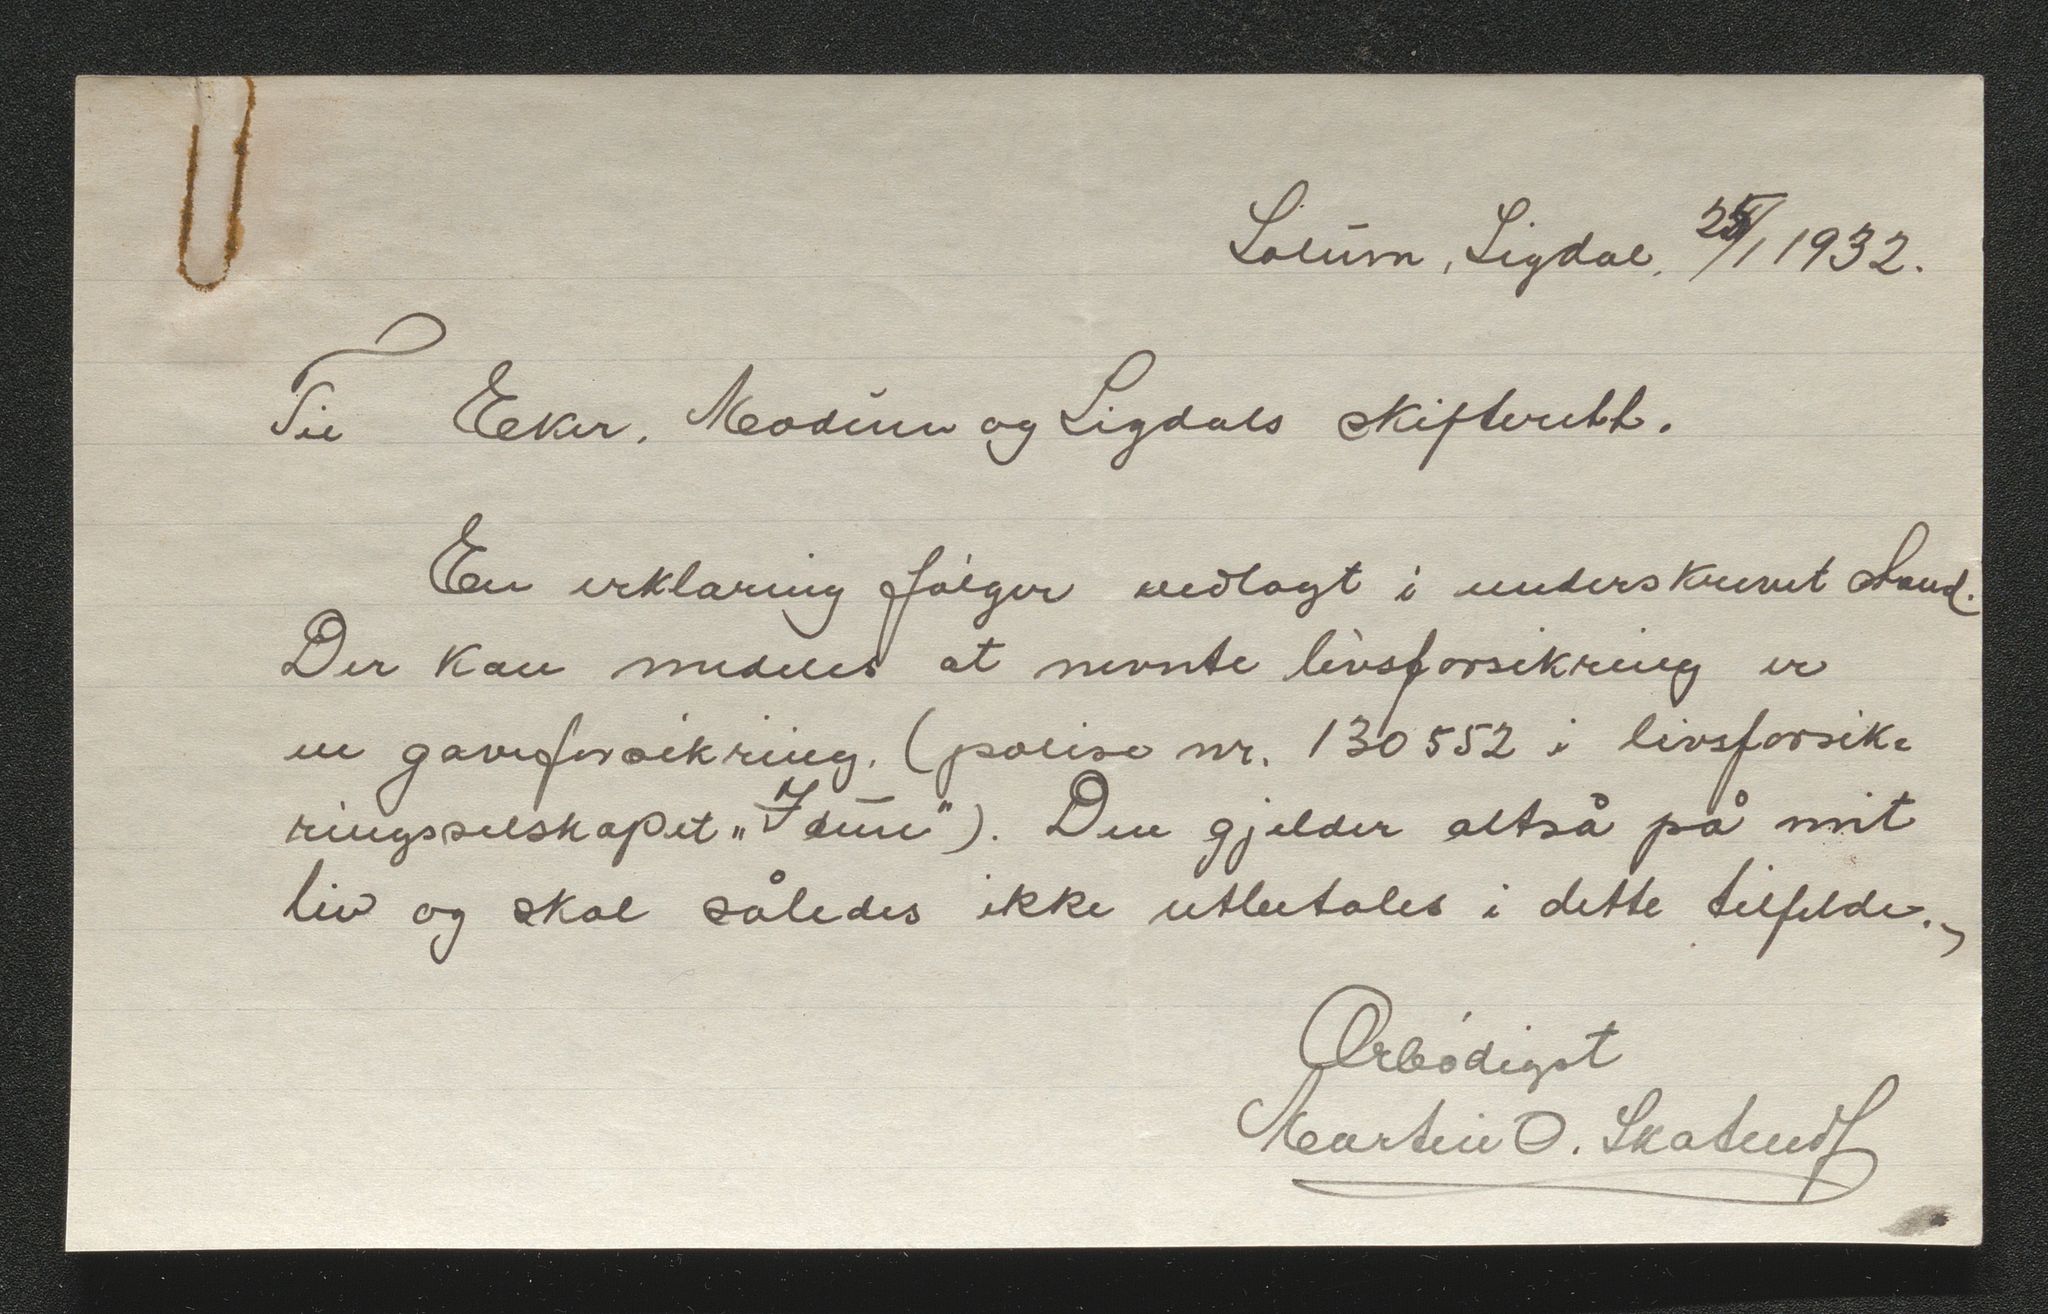 Solum, Sigdal, 25/1 1932.
Til Eker, Modum og Sigdals skifterett.
En erklæring følger vedlagt i underskrevet stand.
Der kan meddeles at nevnte livsforsikring er
en gaveforsikring. (polise nr. 130552 i livsforsik-
ringsselskapet „Idun"). Den gjelder altså på mit
liv og skal således ikke utbetales i dette tilfelde.
Ærbødigst
Martin O. Skatvedt